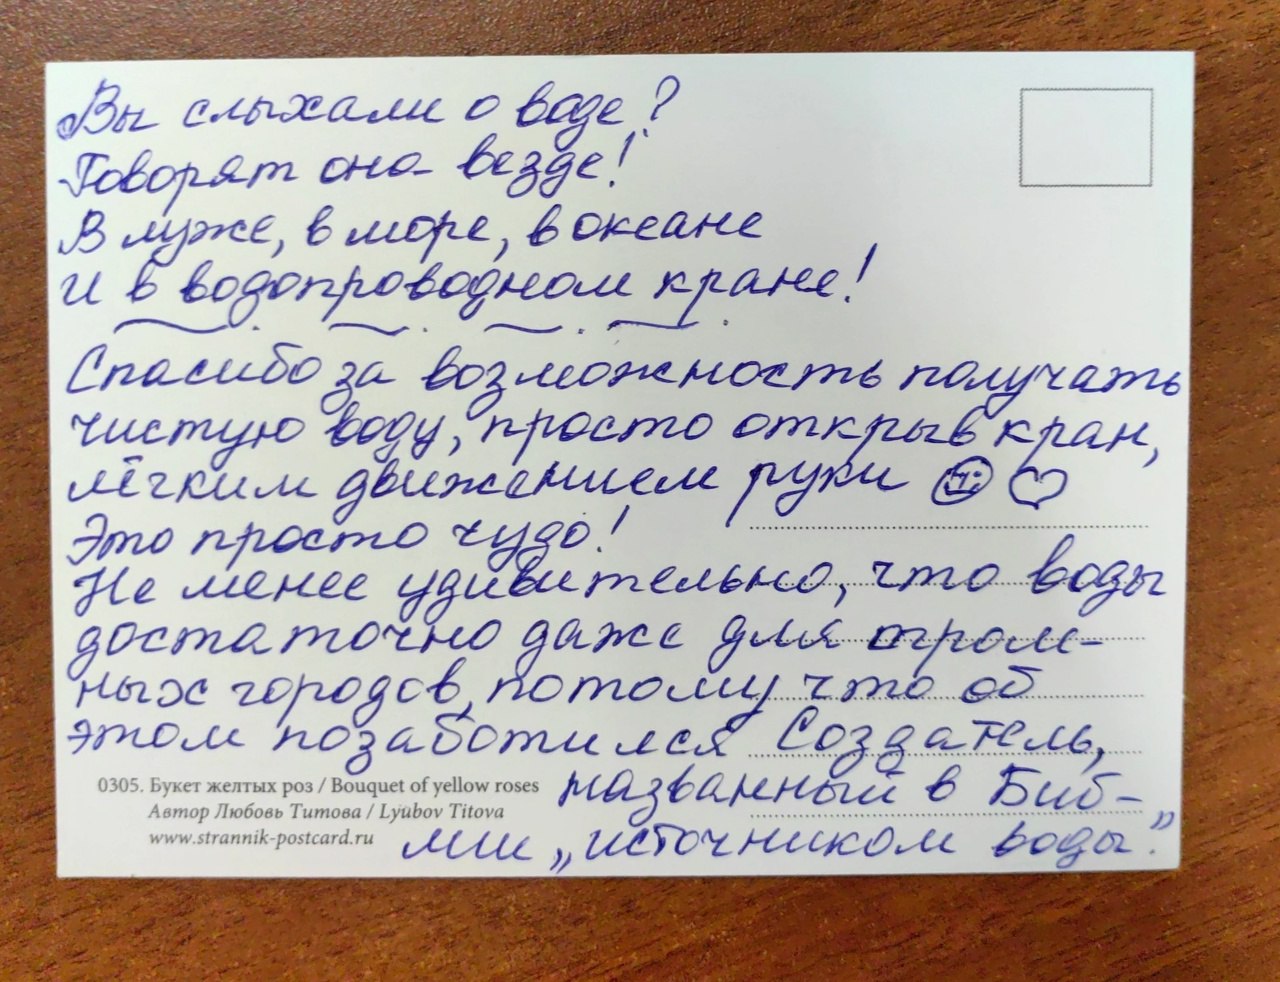 Вы слыхали о воде?
Говорят она везде!
В луже, в море, в океане
И в водопроводном кране!
Спасибо за возможность получать
чистую воду, просто открыв кран,
лёгким движением руки
Это просто чудо!
Не менее удивительно, что воды
достаточно даже для огром-
ных городов, потому что об
этом позаботился Создатель,
названный в Биб-
лии „источником воды".
0305. Букет желтых роз / Bouquet of yellow roses
Автор Любовь Титова / Lyubov Titova
www.strannik-postcard.ru